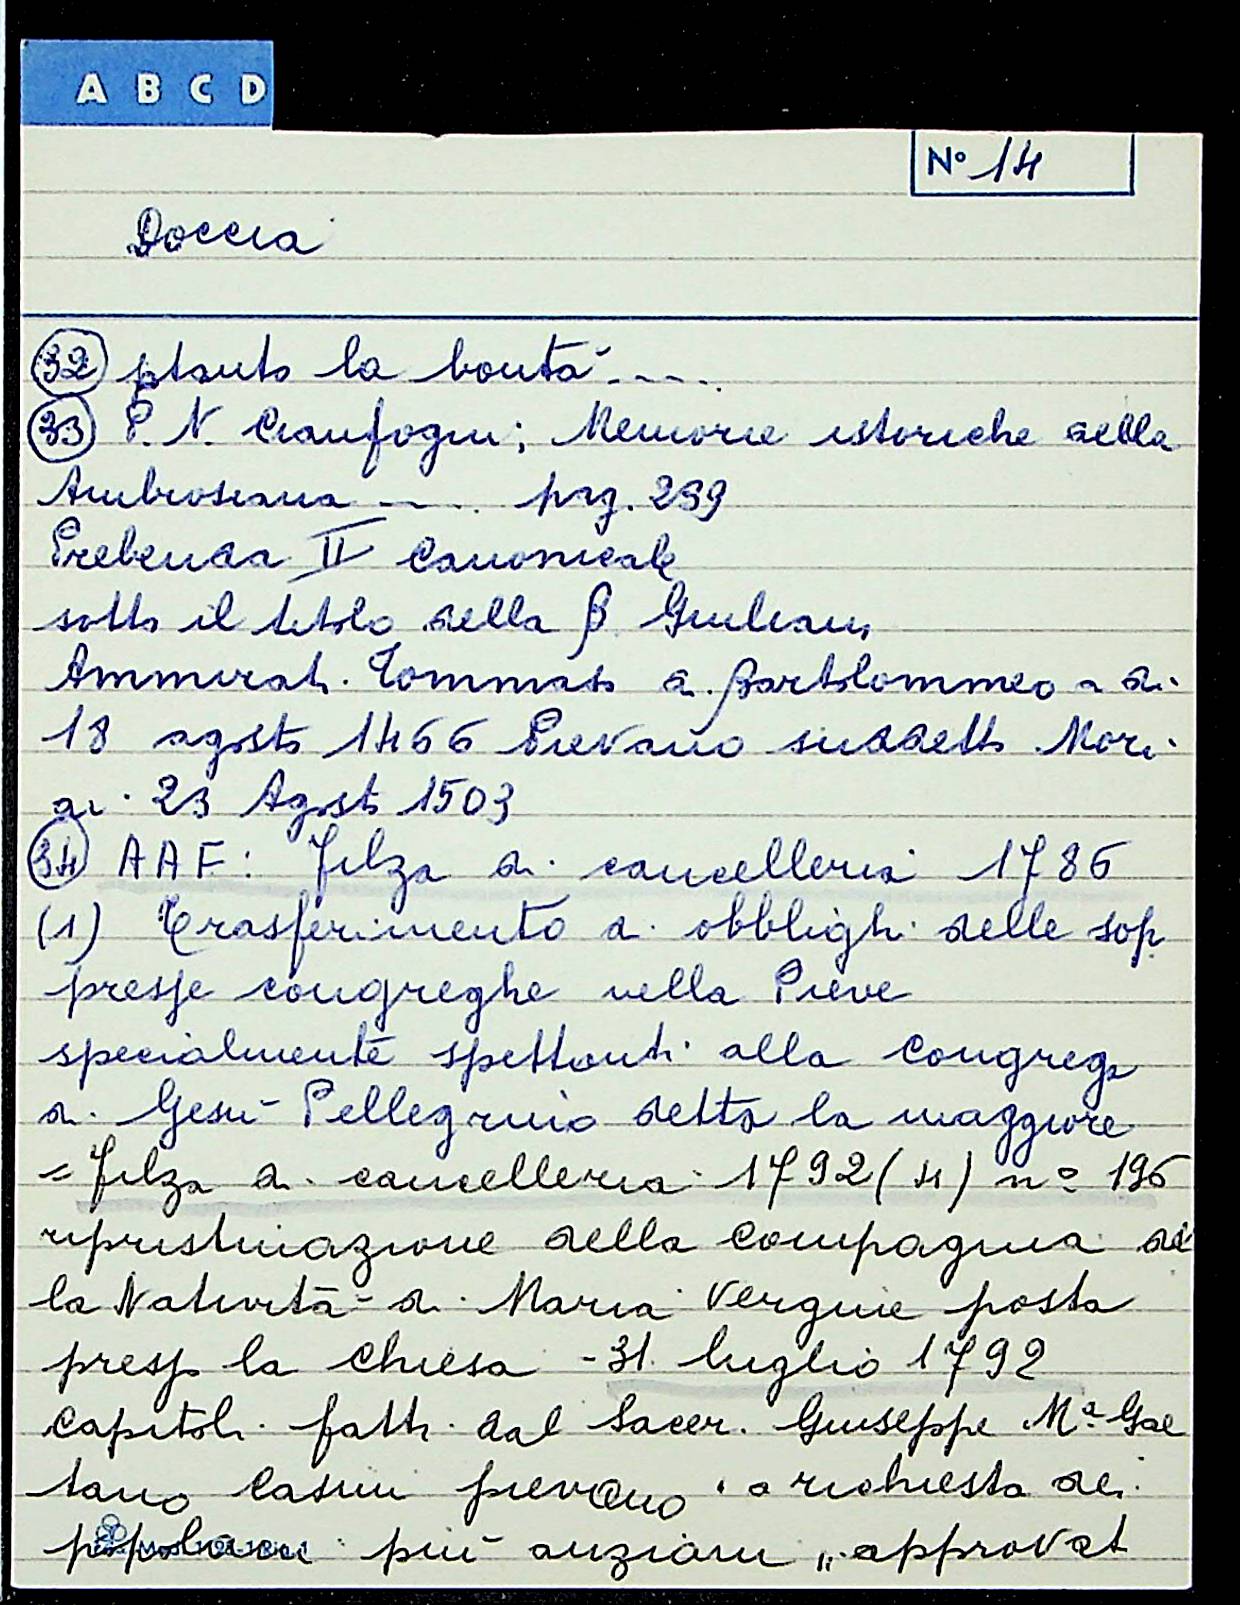 A B C D
N° 14
Doccia
32 ptauto la bontà ....
33 P. N. Cianfogni; Memorie istoriche della
Ambrosiana .... pag. 299
Prebenda II Canonicale
sotto il titolo della B. Giuliani
Ammirati. Tommaso di Bartolommeo a di
18 agosto 1466 Pievano suddetto Mori
di 23 Agosto 1503
34 AAF: Filza di cancelleria 1786
(1) Trasferimento di obblighi delle sop
presse congreghe nella Pieve
specialmente spettanti alla congreg
di Gesù Pellegrino detta la maggiore
= Filza di cancelleria 1792 (4) n° 196
ripristinazione della compagnia del
la Natività di Maria Vergine posta
presso la chiesa - 31 luglio 1792
Capitoli fatti dal Sacer. Giuseppe Mª Gae
tano Casini pievano a richiesta dei
popolani più anziani „approvat